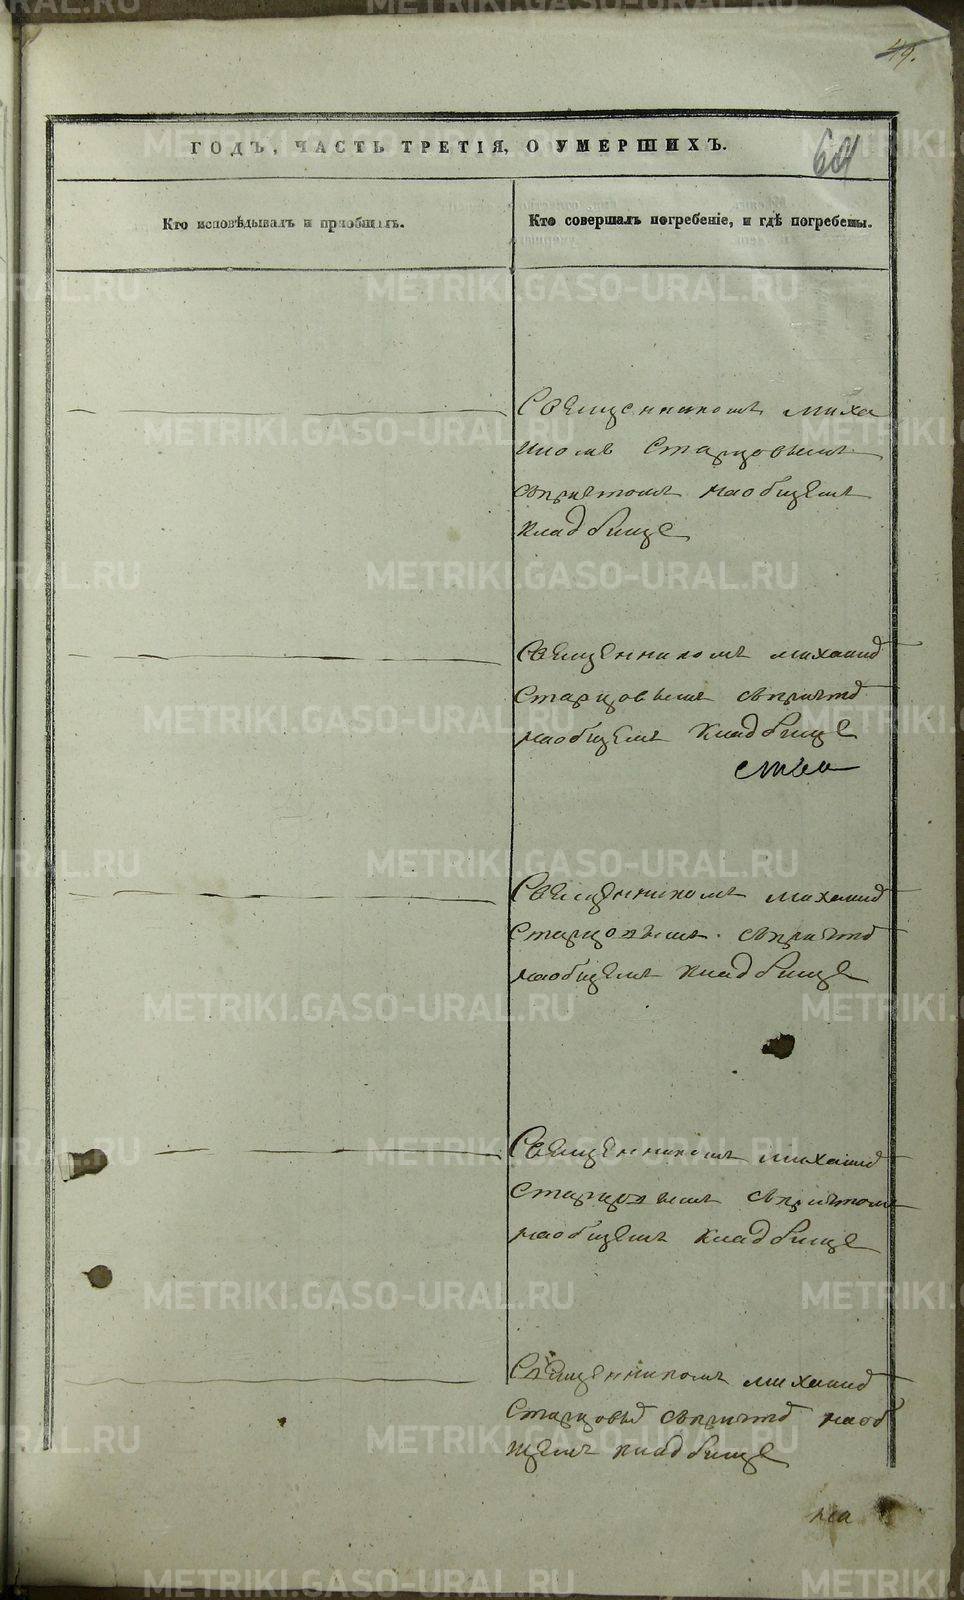 49.
ГОДЪ, ЧАСТЬ ТРЕТІЯ, О УМЕРШИХЪ.
Кто исповѣдывалъ и пріобщалъ.
Кто совершалъ погребеніе, и гдѣ погребены.
Священникомъ Миха
иломъ Старцовымъ
съпричтомъ наобщемъ
кладбище
Священникомъ михаило
Старцовымъ съпричто
наобщемъ кладбище
Священникомъ михаило
Старцовымъ съпричто
наобщемъ кладбище
Священникомъ михаило
Старцовымъ съпричтомъ
наобщемъ кладбище
Священникомъ михаило
Старцовы съпричто наоб
щемъ кладбище
METRIKI.GASO-URAL.RU